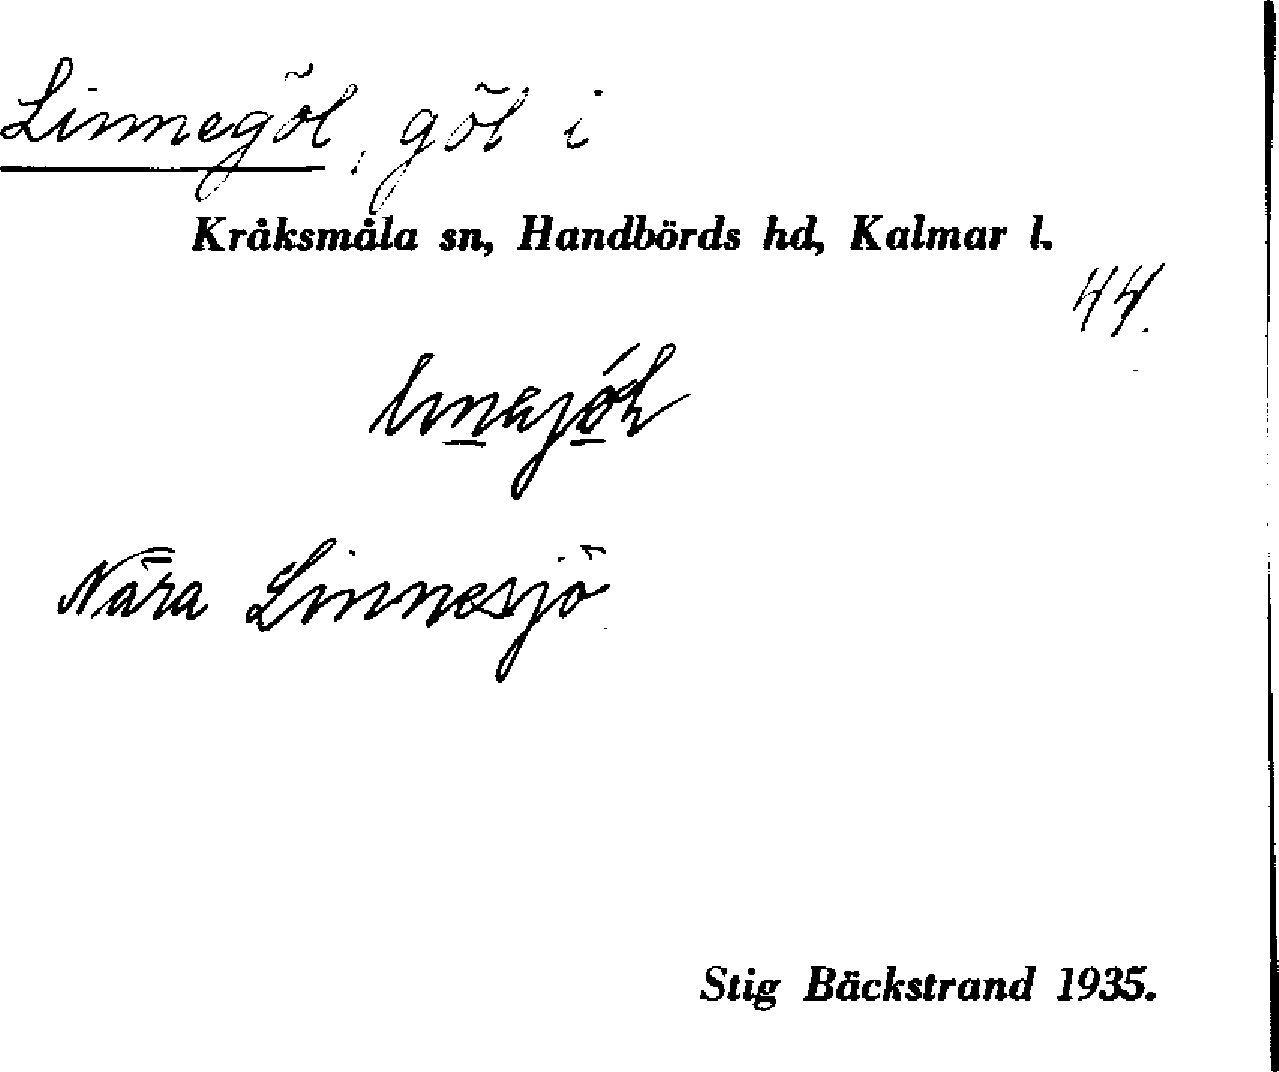 Linnegöl, göl i
Kråksmåla sn, Handbörds hd, Kalmar l.
44.
Nära Linnesjö
Stig Bäckstrand 1935.